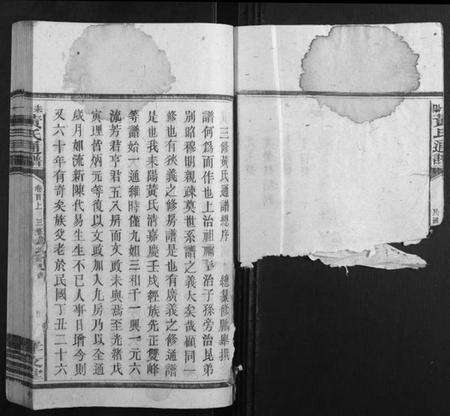 三修黃氏通譜總序 總纂修鵬舉撰
譜何爲而作也上治祖禰下治子孫旁治昆弟
別昭穆明親疎奠世系譜之義大矣哉顧同一
修也有狹義之修房譜是也有廣義之修通譜
是也我耒陽黃氏清嘉慶壬戌經族先正雙峰
等譜始一通維時僅九如三和千一興一元六
流芳君亨君五八房而文政未與焉至光緒戊
寅理皆炳元等復以文政加入九房乃以全通
歲月如流新陳代易生生不已人事日增今則
又六十年有奇矣族叟老於民國丁丑二十六
耒黃氏通譜 卷首上
黃氏通譜 民國